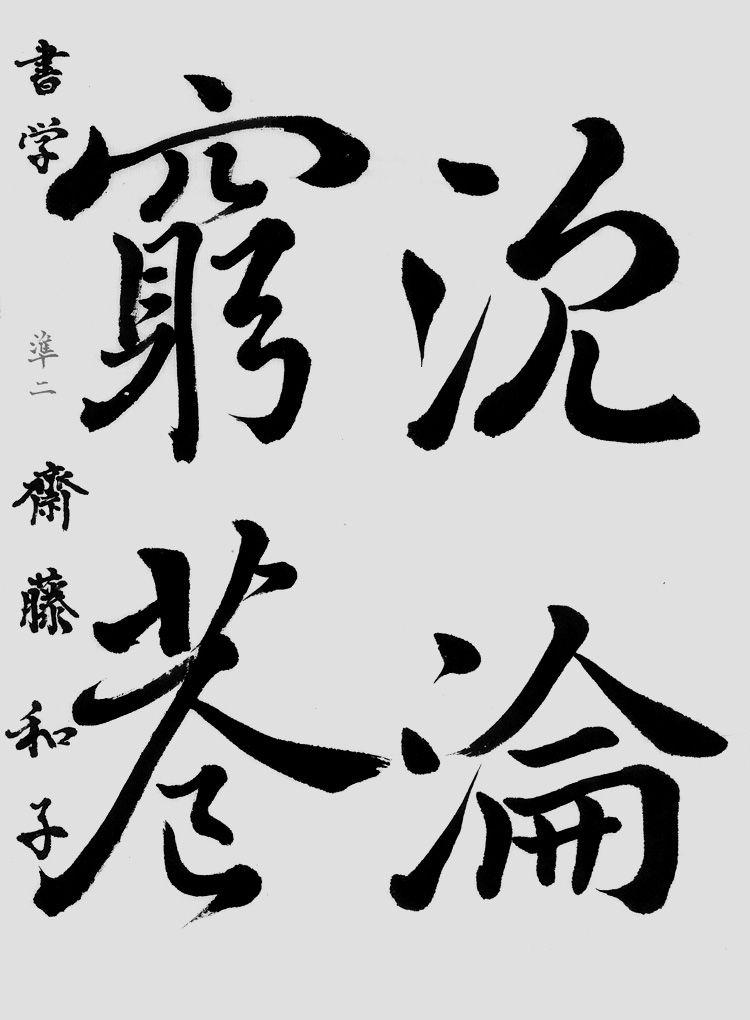 沈淪
窮巷
書学 準二 齋藤和子